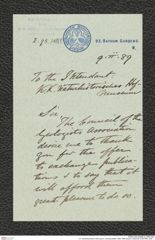 93, Bayham Gardens,
W.
Z. 95. 1889
9. II. 89
To the Intendant
K.K. Naturhistorisches Hof
Museum
Sir
The Council of the
Geologists Association
desire me to thank
you for the offer
to exchange publica
tions & to say that it
will afford them
great pleasure to do so.